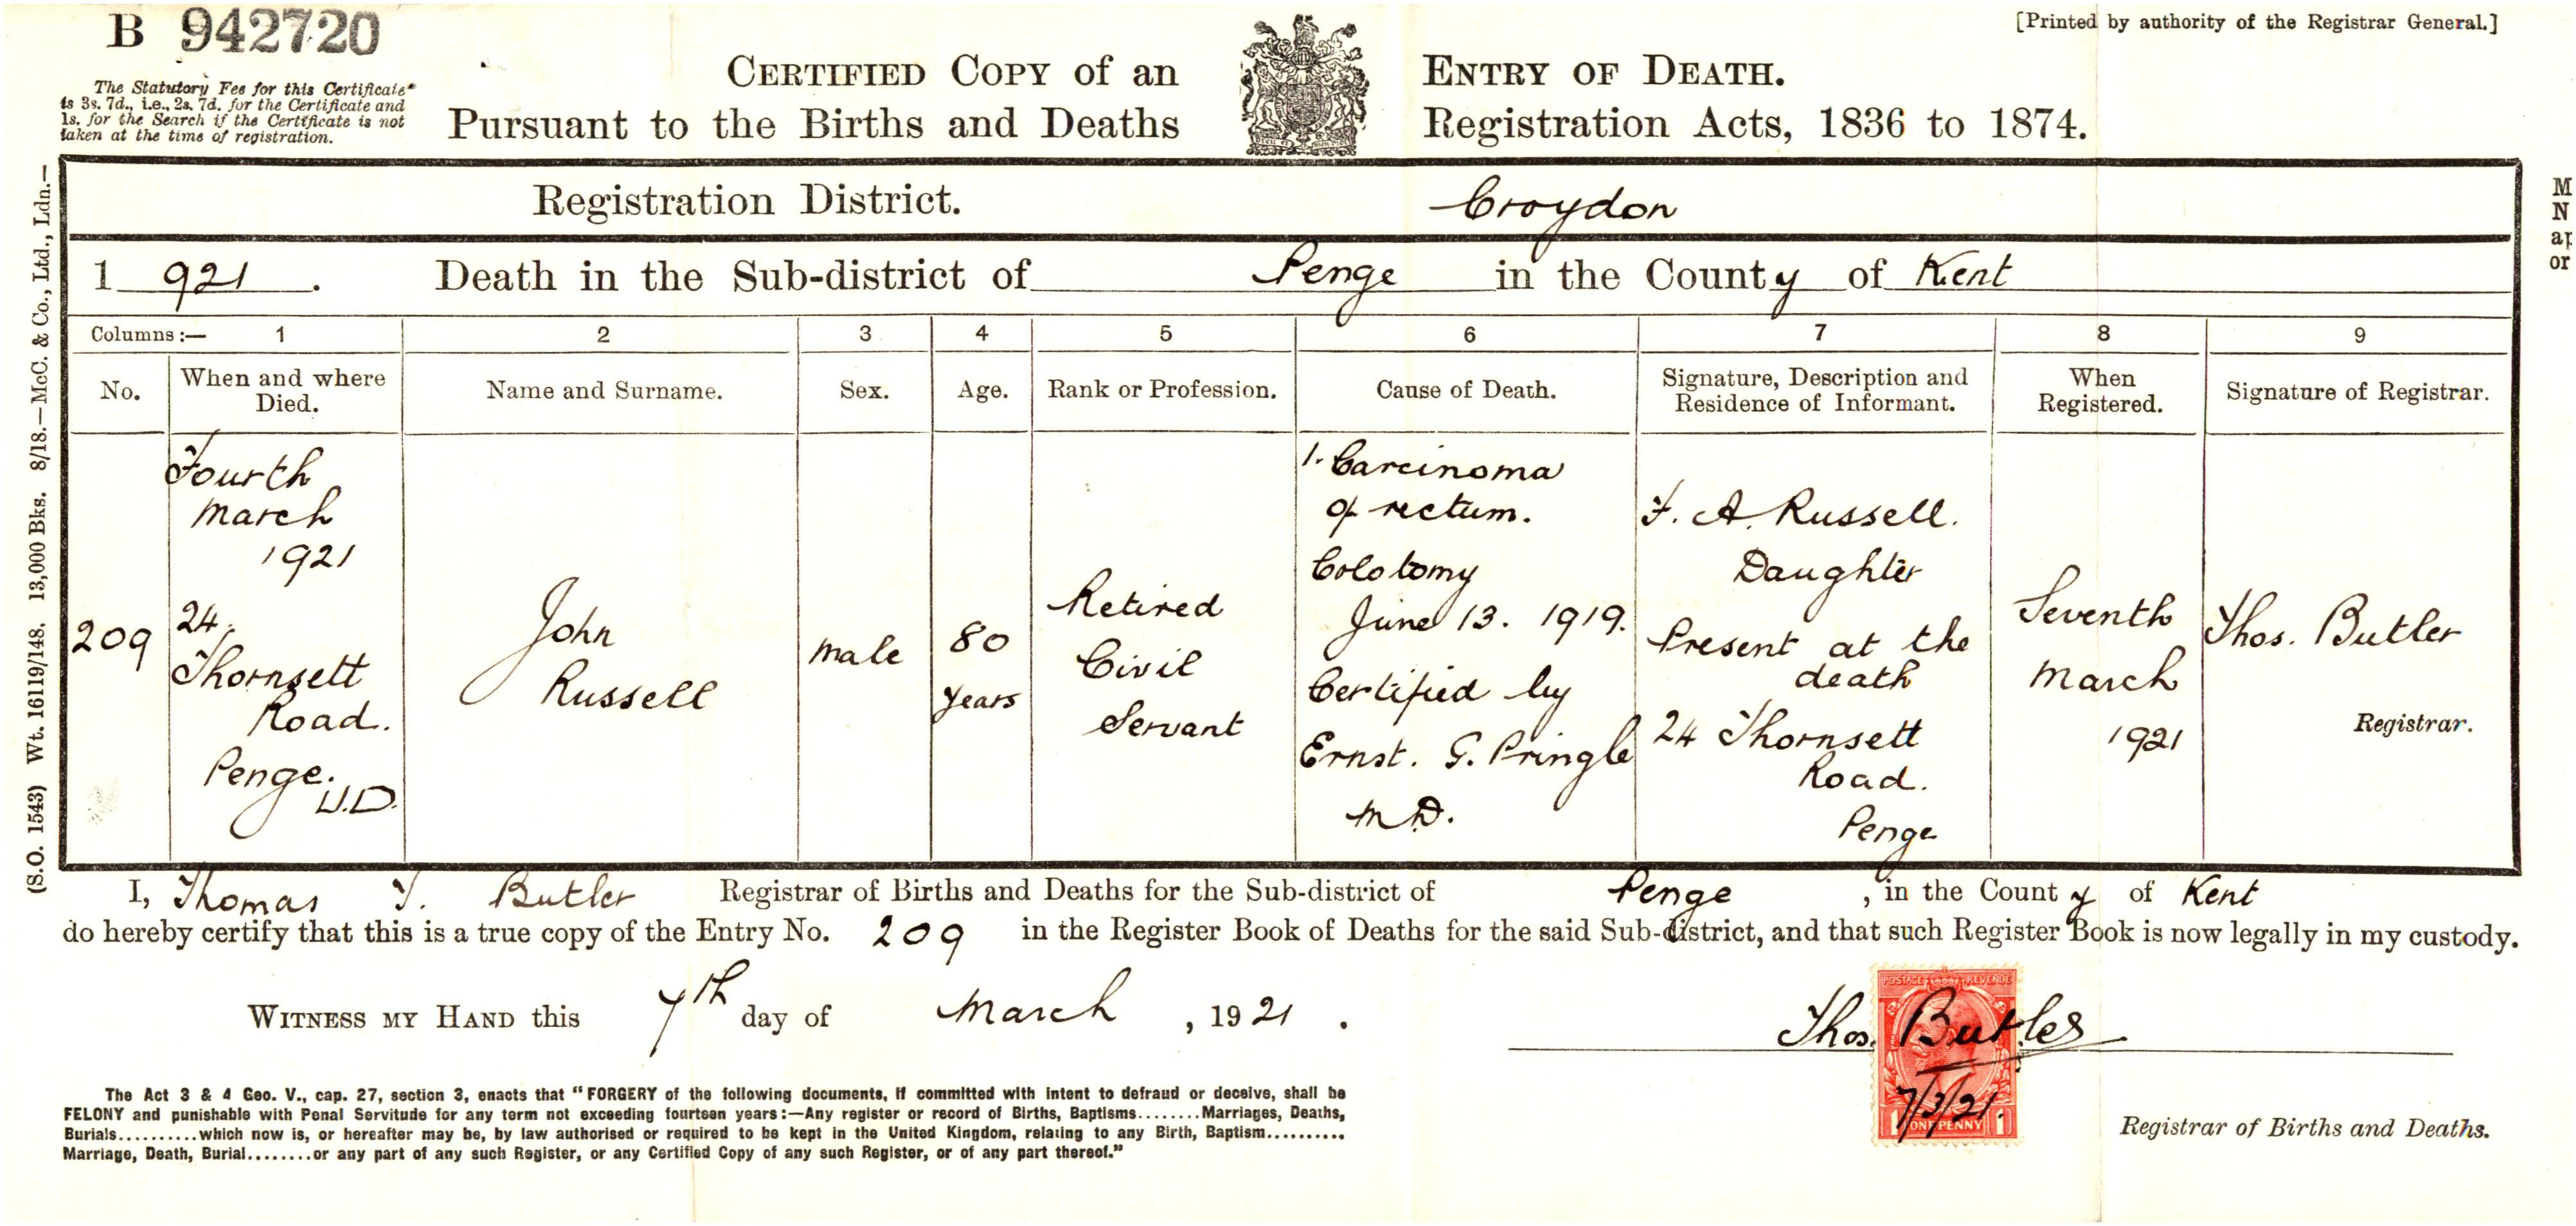 B 942720
[Printed by authority of the Registrar General.]
The Statutory Fee for this Certificate
is 3s. 7d., i.e., 2s. 7d. for the Certificate and
1s. for the Search if the Certificate is not
taken at the time of registration.
CERTIFIED COPY of an ENTRY OF DEATH.
Pursuant to the Births and Deaths Registration Acts, 1836 to 1874.
(S.O. 1543) Wt. 16119/148. 13,000 Bks. 8/18.—McC. & Co., Ltd., Ldn.—
M
N
or
Registration District. Croydon
1921. Death in the Sub-district of Penge in the County of Kent
Columns:— 1 2 3 4 5 6 7 8 9
No.
When and where
Died.
Name and Surname.
Sex.
Age.
Rank or Profession.
Cause of Death.
Signature, Description and
Residence of Informant.
When
Registered.
Signature of Registrar.
209
Fourth
March
1921
24.
Thornsett
Road.
Penge.
U.D.
John
Russell
Male
80
years
Retired
Civil
Servant
1. Carcinoma
of rectum.
Colotomy
June 13. 1919.
Certified by
Ernst. G. Pringle
M.D.
F. A. Russell.
Daughter
Present at the
death
24 Thornsett
Road.
Penge
Seventh
March
1921
Thos. Butler
Registrar.
I, Thomas T. Butler Registrar of Births and Deaths for the Sub-district of Penge, in the County of Kent
do hereby certify that this is a true copy of the Entry No. 209 in the Register Book of Deaths for the said Sub-district, and that such Register Book is now legally in my custody.
WITNESS MY HAND this 7th day of March, 1921.
Thos. Butler
POSTAGE REVENUE
7/3/21.
1 ONE PENNY 1
Registrar of Births and Deaths.
The Act 3 & 4 Geo. V., cap. 27, section 3, enacts that "FORGERY of the following documents, if committed with intent to defraud or deceive, shall be
FELONY and punishable with Penal Servitude for any term not exceeding fourteen years:—Any register or record of Births, Baptisms........Marriages, Deaths,
Burials..........which now is, or hereafter may be, by law authorised or required to be kept in the United Kingdom, relating to any Birth, Baptism..........
Marriage, Death, Burial........or any part of any such Register, or any Certified Copy of any such Register, or of any part thereof."